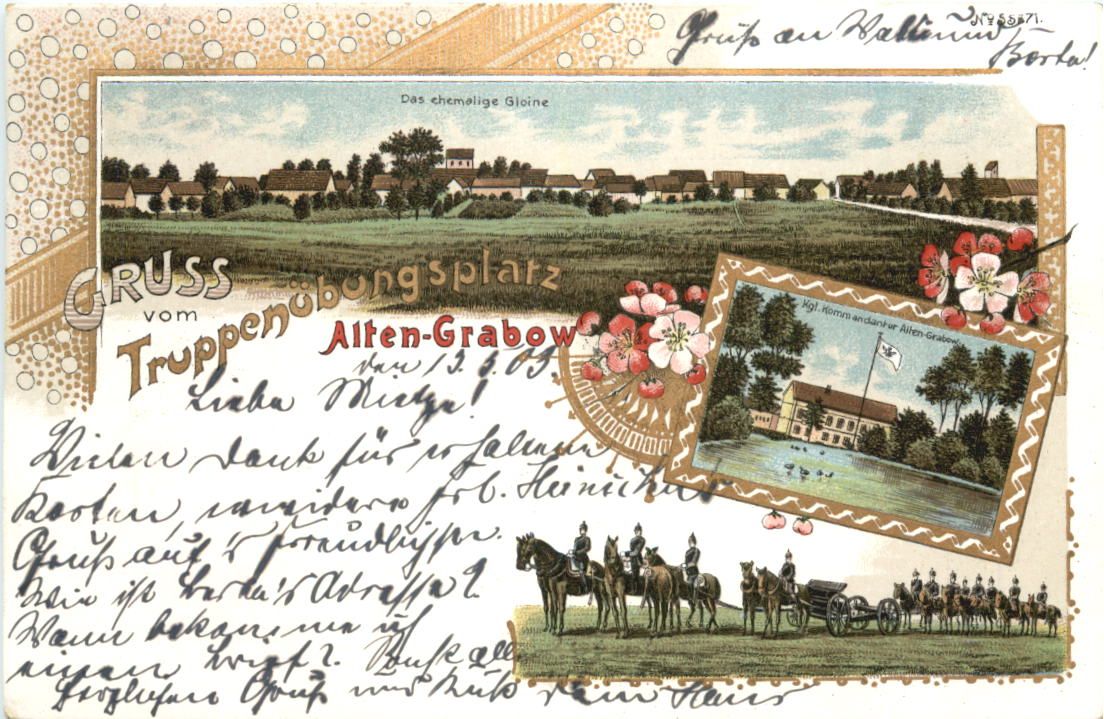 No 55371.
Gruß an Walli und
Berta!
Das ehemalige Gloine
GRUSS
vom
Truppenübungsplatz
Alten-Grabow
Kgl. Kommandantur Alten-Grabow
den 13.5.03.
Liebe Mietze!
Vielen Dank für erhaltene
Karten, erwidere Frl.
Gruß auf's freundlichste.
Wie ist Berta's Adresse?
Wann bekomme ich
einen Brief? Sonst all
herzlichen Gruß und Kuß Dein Hans